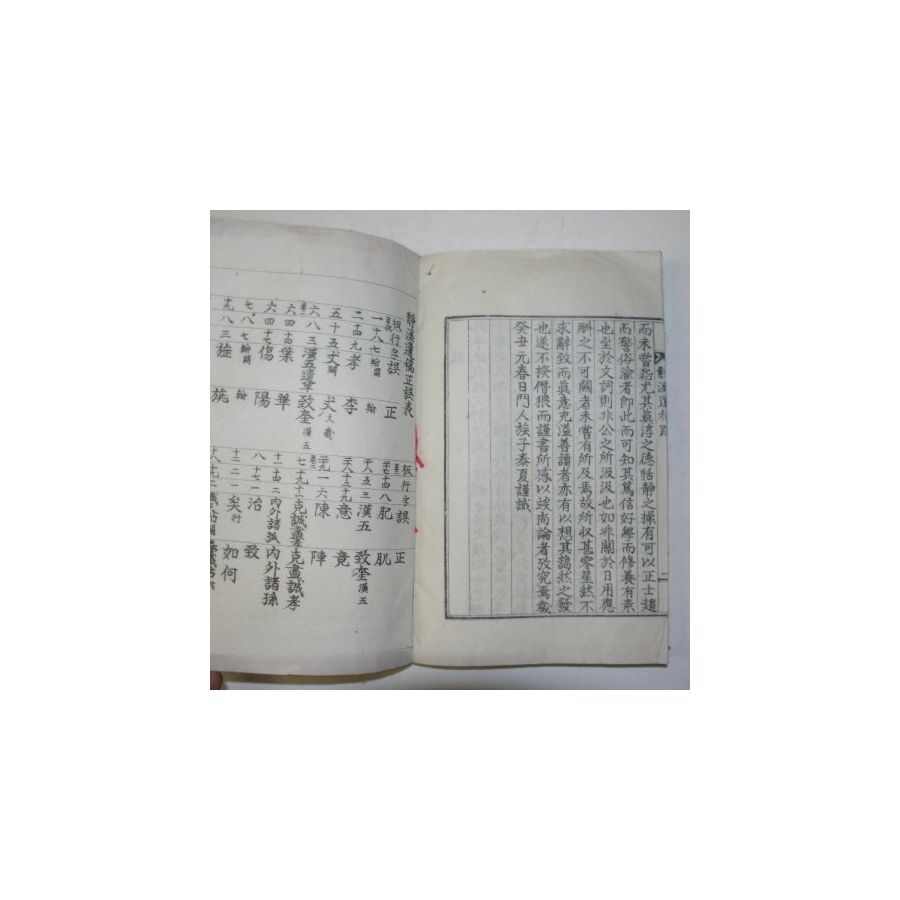 而未嘗恝尤其眞淳之德恬靜之操有可以正士趨
而警俗渝者卽此而可知其篤信好學而修養有素
也至於文詞則非公之所汲汲也如非關於日用應
酬之不可闕者未嘗有所及焉故所収甚零星然不
求辭致而眞意充溢善讀者亦有以想其藹然之發
也遂不揆僭猥而謹書所感以竢尙論者攷究焉歲
癸丑元春日門人族子泰夏謹識
靜溪遺稿正誤表
板行字誤 正 板行字誤 正
一 十八 七 輪圖 輪
二 十四 九 孝 李
五 十五 丈
六 八 三 漢五遺事 致奎漢五
六 四 葉 華
六 四 十七 傷 陽
七 八 輪圖 輪
十九 八 三 旋 施
十四 八 肥 肌
十八 五 三 漢五 致奎漢五
意 竟
一 六 陳 陣
七 十九 十一 克誠盡孝 克盡誠孝
十一 十四 二 內外諸孤 內外諸孫
八 十七 一 治 致
十二 二 一 矣 如何